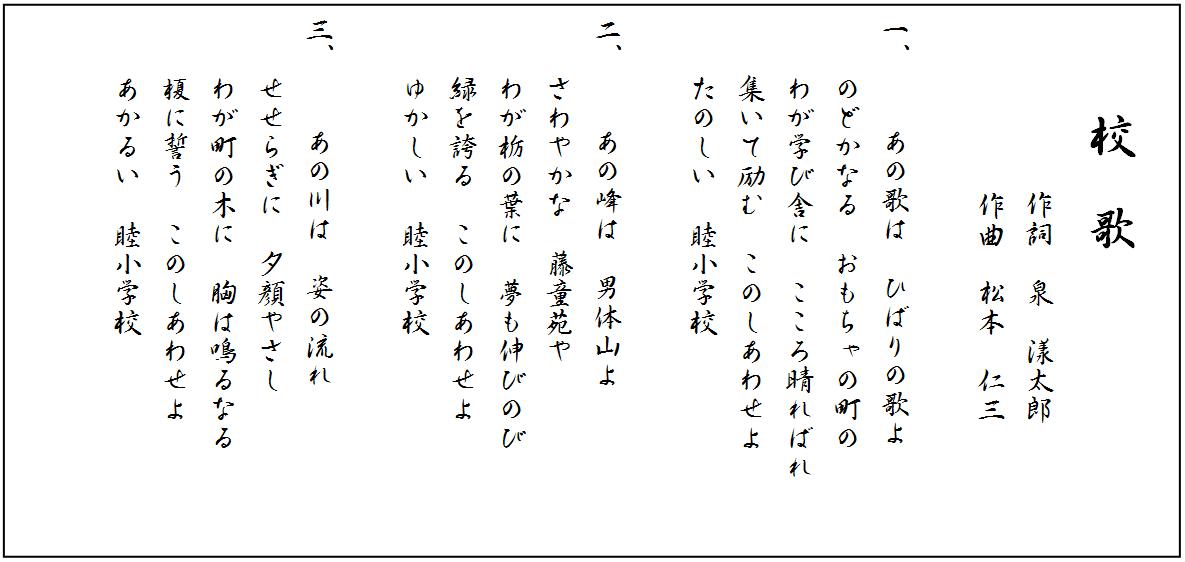 校　歌
作詞　泉　漾太郎
作曲　松本　仁三
一、
あの歌は　ひばりの歌よ
のどかなる　おもちゃの町の
わが学び舎に　こころ晴ればれ
集いて励む　このしあわせよ
たのしい　睦小学校
二、
あの峰は　男体山よ
さわやかな　藤童苑や
わが栃の葉に　夢も伸びのび
緑を誇る　このしあわせよ
ゆかしい　睦小学校
三、
あの川は　姿の流れ
せせらぎに　夕顔やさし
わが町の木に　胸は鳴るなる
榎に誓う　このしあわせよ
あかるい　睦小学校